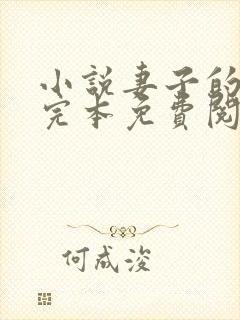 小說妻子的
完本免費閱
何成浚